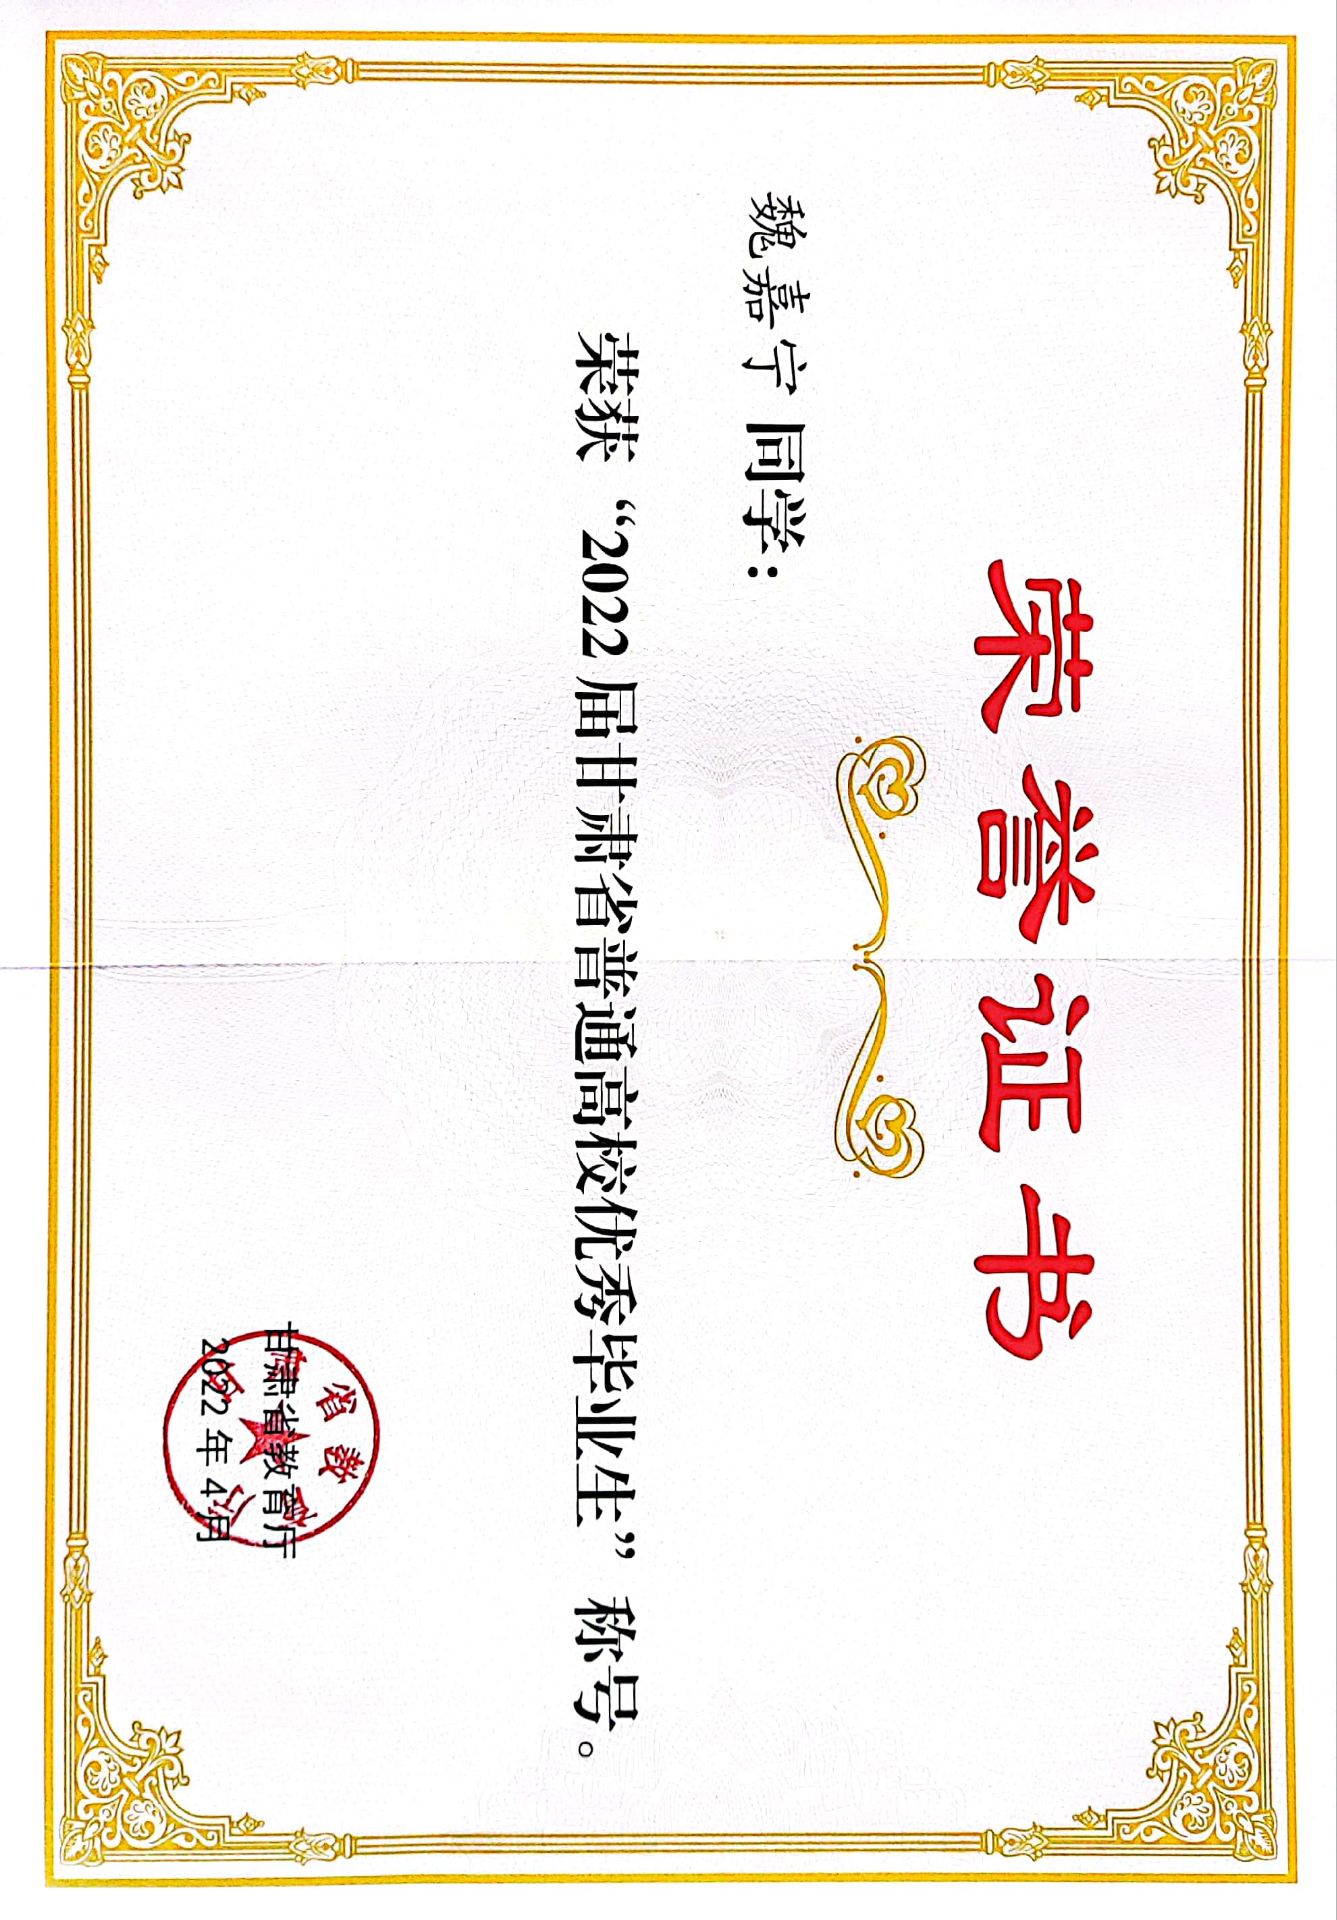 荣誉证书
魏嘉宁 同学：
荣获“2022届甘肃省普通高校优秀毕业生”称号。
甘肃省教育厅
2022年4月
甘肃省教育厅